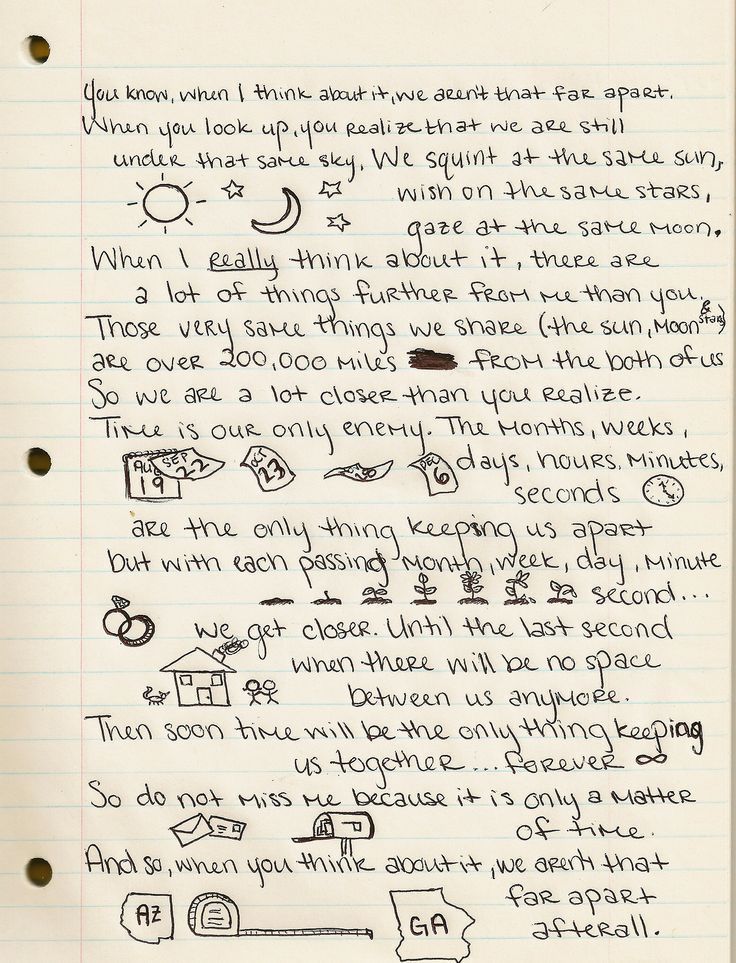 You know, when I think about it, we aren't that far apart.
When you look up, you realize that we are still
under that same sky. We squint at the same sun,
wish on the same stars,
gaze at the same moon.
When I really think about it, there are
a lot of things further from me than you.
Those very same things we share (the sun, moon & stars)
are over 200,000 miles from the both of us
So we are a lot closer than you realize.
Time is our only enemy. The months, weeks,
AUG 19 SEP 22 OCT 23 30 DEC 6 days, hours, minutes,
seconds
are the only thing keeping us apart
but with each passing month, week, day, minute
second...
we get closer. Until the last second
when there will be no space
between us anymore.
Then soon time will be the only thing keeping
us together... forever ∞
So do not miss me because it is only a matter
of time.
And so, when you think about it, we aren't that
far apart
AZ GA afterall.